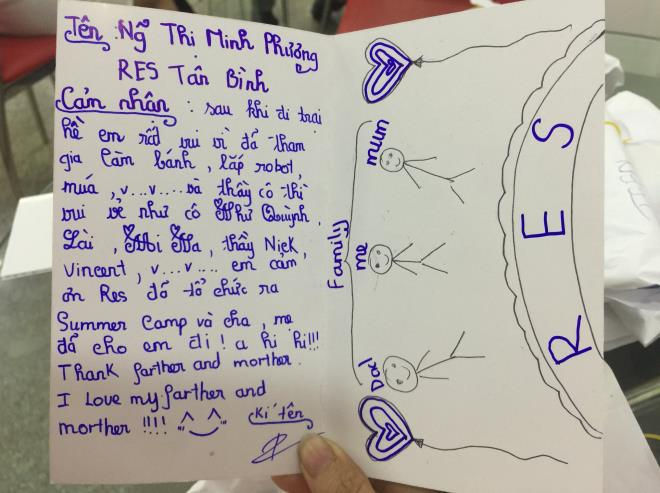 Tên : Ng Thi Minh Phương
RES Tân Bình
Cảm nhận : sau khi đi trại
hè em rất vui vì đã tham
gia làm bánh, lắp robot,
múa, v...v.... và thầy cô thì
vui vẻ như cô Như Quỳnh,
Lài, Mi Na, thầy Nick,
Vincent, v...v.... em cảm
ơn Res đã tổ chức ra
Summer Camp và cha, mẹ
đã cho em đi! a hi hi!!!
Thank farther and morther.
I Love my farther and
morther !!!!
Kí tên
Family
mum
me
Dad
RES